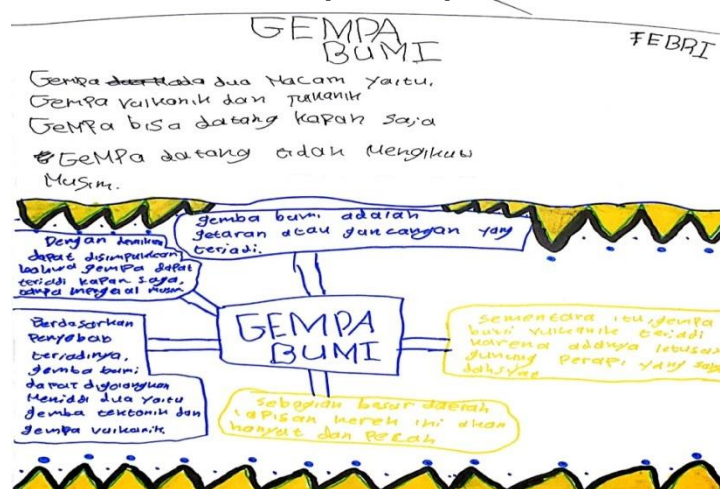 GEMPA
BUMI
FEBRI
Gempa ada dua Macam yaitu.
Gempa vulkanik dan
GeMPa bisa datang Kapan saja
GeMPa datang tidak Mengikuti
Musim.
gemba bumi adalah
getaran atau guncangan yang
terjadi.
Dengan demikian
dapat disimpulkan
bahwa gempa dapat
terjadi kapan saja,
tanpa mengenal musim
GEMPA
BUMI
Berdasarkan
Penyebab
terjadinya,
gemba bumi
dapat digolongkan
Menjadi dua yaitu
gemba tektonik dan
gempa vulkanik.
sementara itu, gempa
bumi vulkanik terjadi
karena adanya letusan
gunung perapi yang
dahsyat
sebagian besar daerah
lapisan kerek ini akan
hanyut dan Pecah